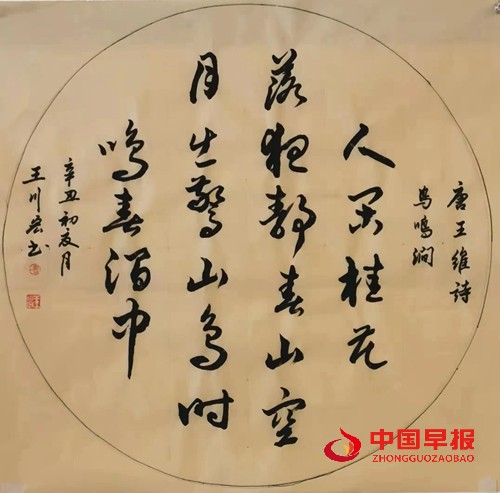 唐王維詩
鸟鸣涧
人闲桂花
落夜静春山空
月出驚山鸟时
鸣春涧中
辛丑初夏月
王川书
中国早报
ZHONGGUOZAOBAO